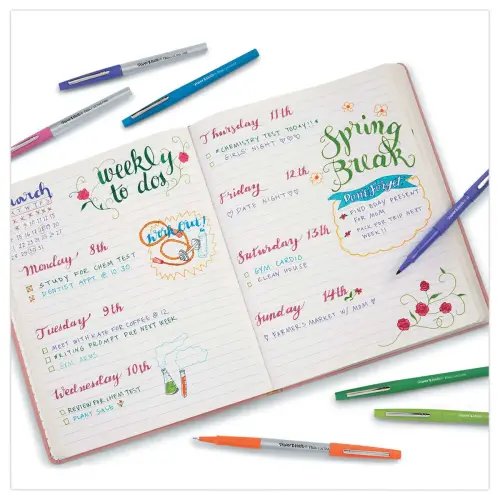 March
weekly
to dos
work out!
Monday 8th
STUDY FOR CHEM TEST
DENTIST APPT. @ 10:30
Tuesday 9th
MEET WITH KATE FOR COFFEE @ 12
WRITING PROMPT DUE NEXT WEEK
GYM ARMS
Wednesday 10th
REVIEW FOR CHEM TEST
PLANT SALE
Thursday 11th
*CHEMISTRY TEST TODAY!!*
GIRLS' NIGHT ♡♡♡♡
Friday 12th
DATE NIGHT ♡♡♡
Saturday 13th
GYM CARDIO
CLEAN HOUSE
Sunday 14th
FARMER'S MARKET W/ MOM ♡
Spring
Break
Don't Forget
FIND BDAY PRESENT
FOR MOM
PACK FOR TRIP NEXT
WEEK!!
Paper Mate
Paper Mate
Paper Mate
Paper Mate
Paper Mate